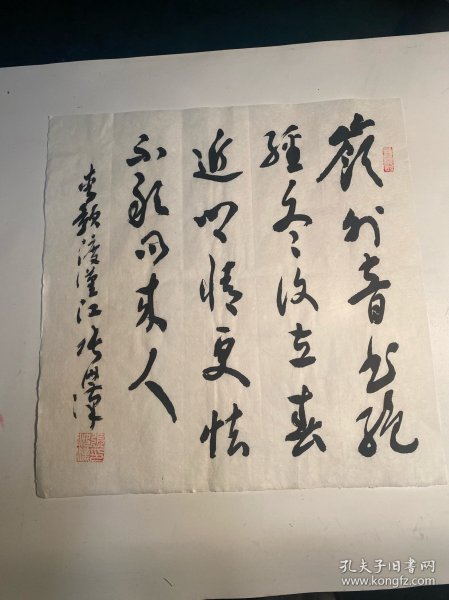 嶺外音书絕
經冬復立春
近鄉情更怯
不敢问來人
李頻渡漢江
孔夫子旧书网
www.kongfz.com